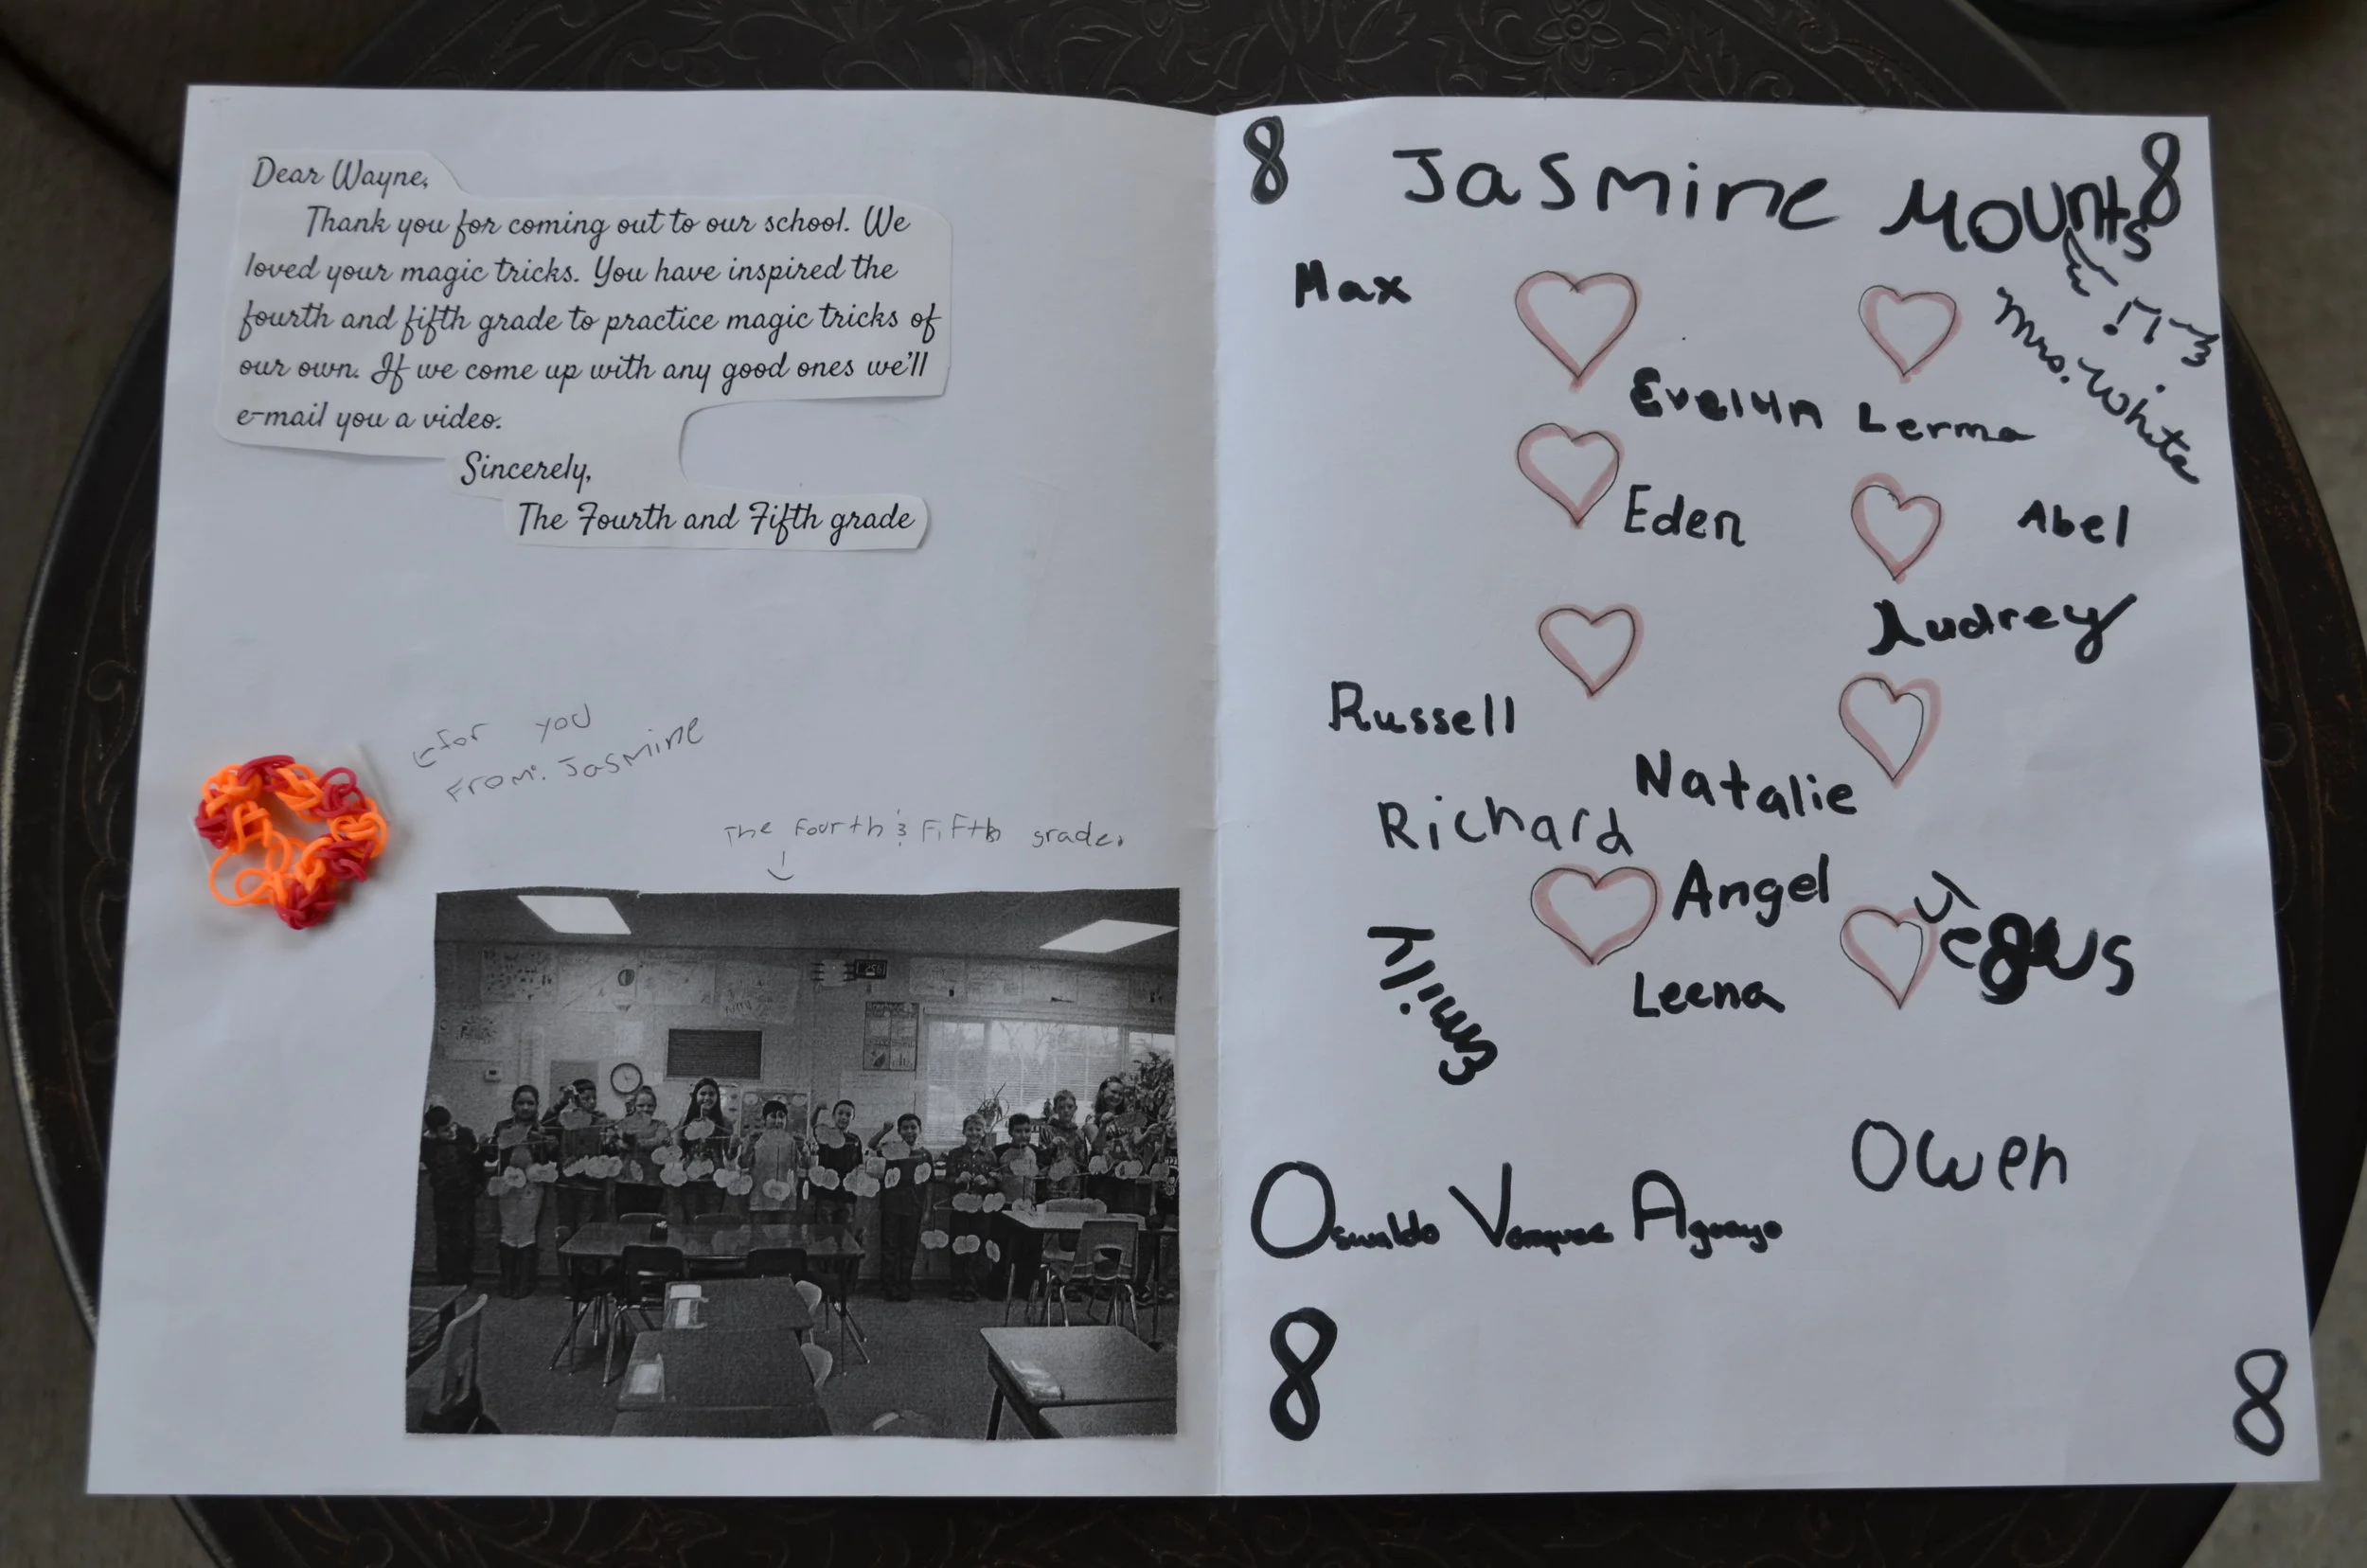 Dear Wayne,
Thank you for coming out to our school. We
loved your magic tricks. You have inspired the
fourth and fifth grade to practice magic tricks of
our own. If we come up with any good ones we'll
e-mail you a video.
Sincerely,
The Fourth and Fifth grade
for you
From: Jasmine
The Fourth & Fifth grade
8
8
Jasmine Mounts
Mrs. White
Max
Evelyn Lerma
Eden
Abel
Audrey
Russell
Natalie
Richard
Angel
Jesus
Emily
Leena
Owen
Oswaldo Vazquez Aguayo
8
8